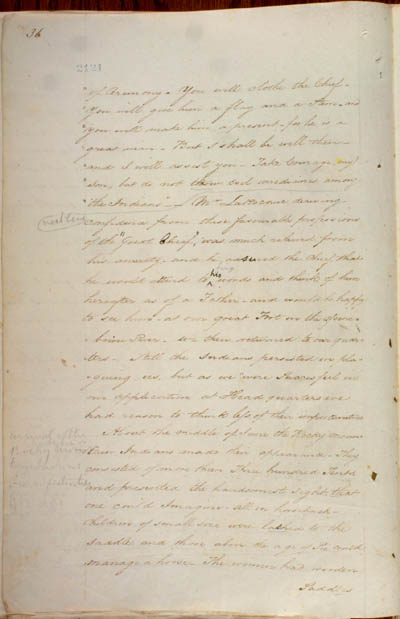 36
2121
"of Ceremony - You will clothe the Chief -
"You will give him a flag and a Stem - and
"you will make him a present - for he is a
great man - But I shall be well there
"and I will assist you - Take Courage, my
"son, but do not throw evil medicines among
"the Indians" - Mr Larocque deriving
confidence from these favourable professions
of the "Great Chief", was much relieved from
his anxiety - and he assured the Chief that
he would attend to his words and think of him
hereafter as of a Father - and would be happy
to see him - at our great Fort on the
River - we then returned to our quar-
ters - Still the Indians persisted in pla-
guing us, but as we were Successful in
our application at Head quarters we
had reason to think less of their importunities
About the middle of June the Rocky moun-
tain Indians made their appearance - They
consisted of more than Three hundred Tents
and presented the handsomest Sight that
one could Imagine - all on horseback -
Children of small size were lashed to the
Saddle, and those above the age of Six could
manage a horse - The women had wooden
Saddles
arrival of the
Rocky Mountain